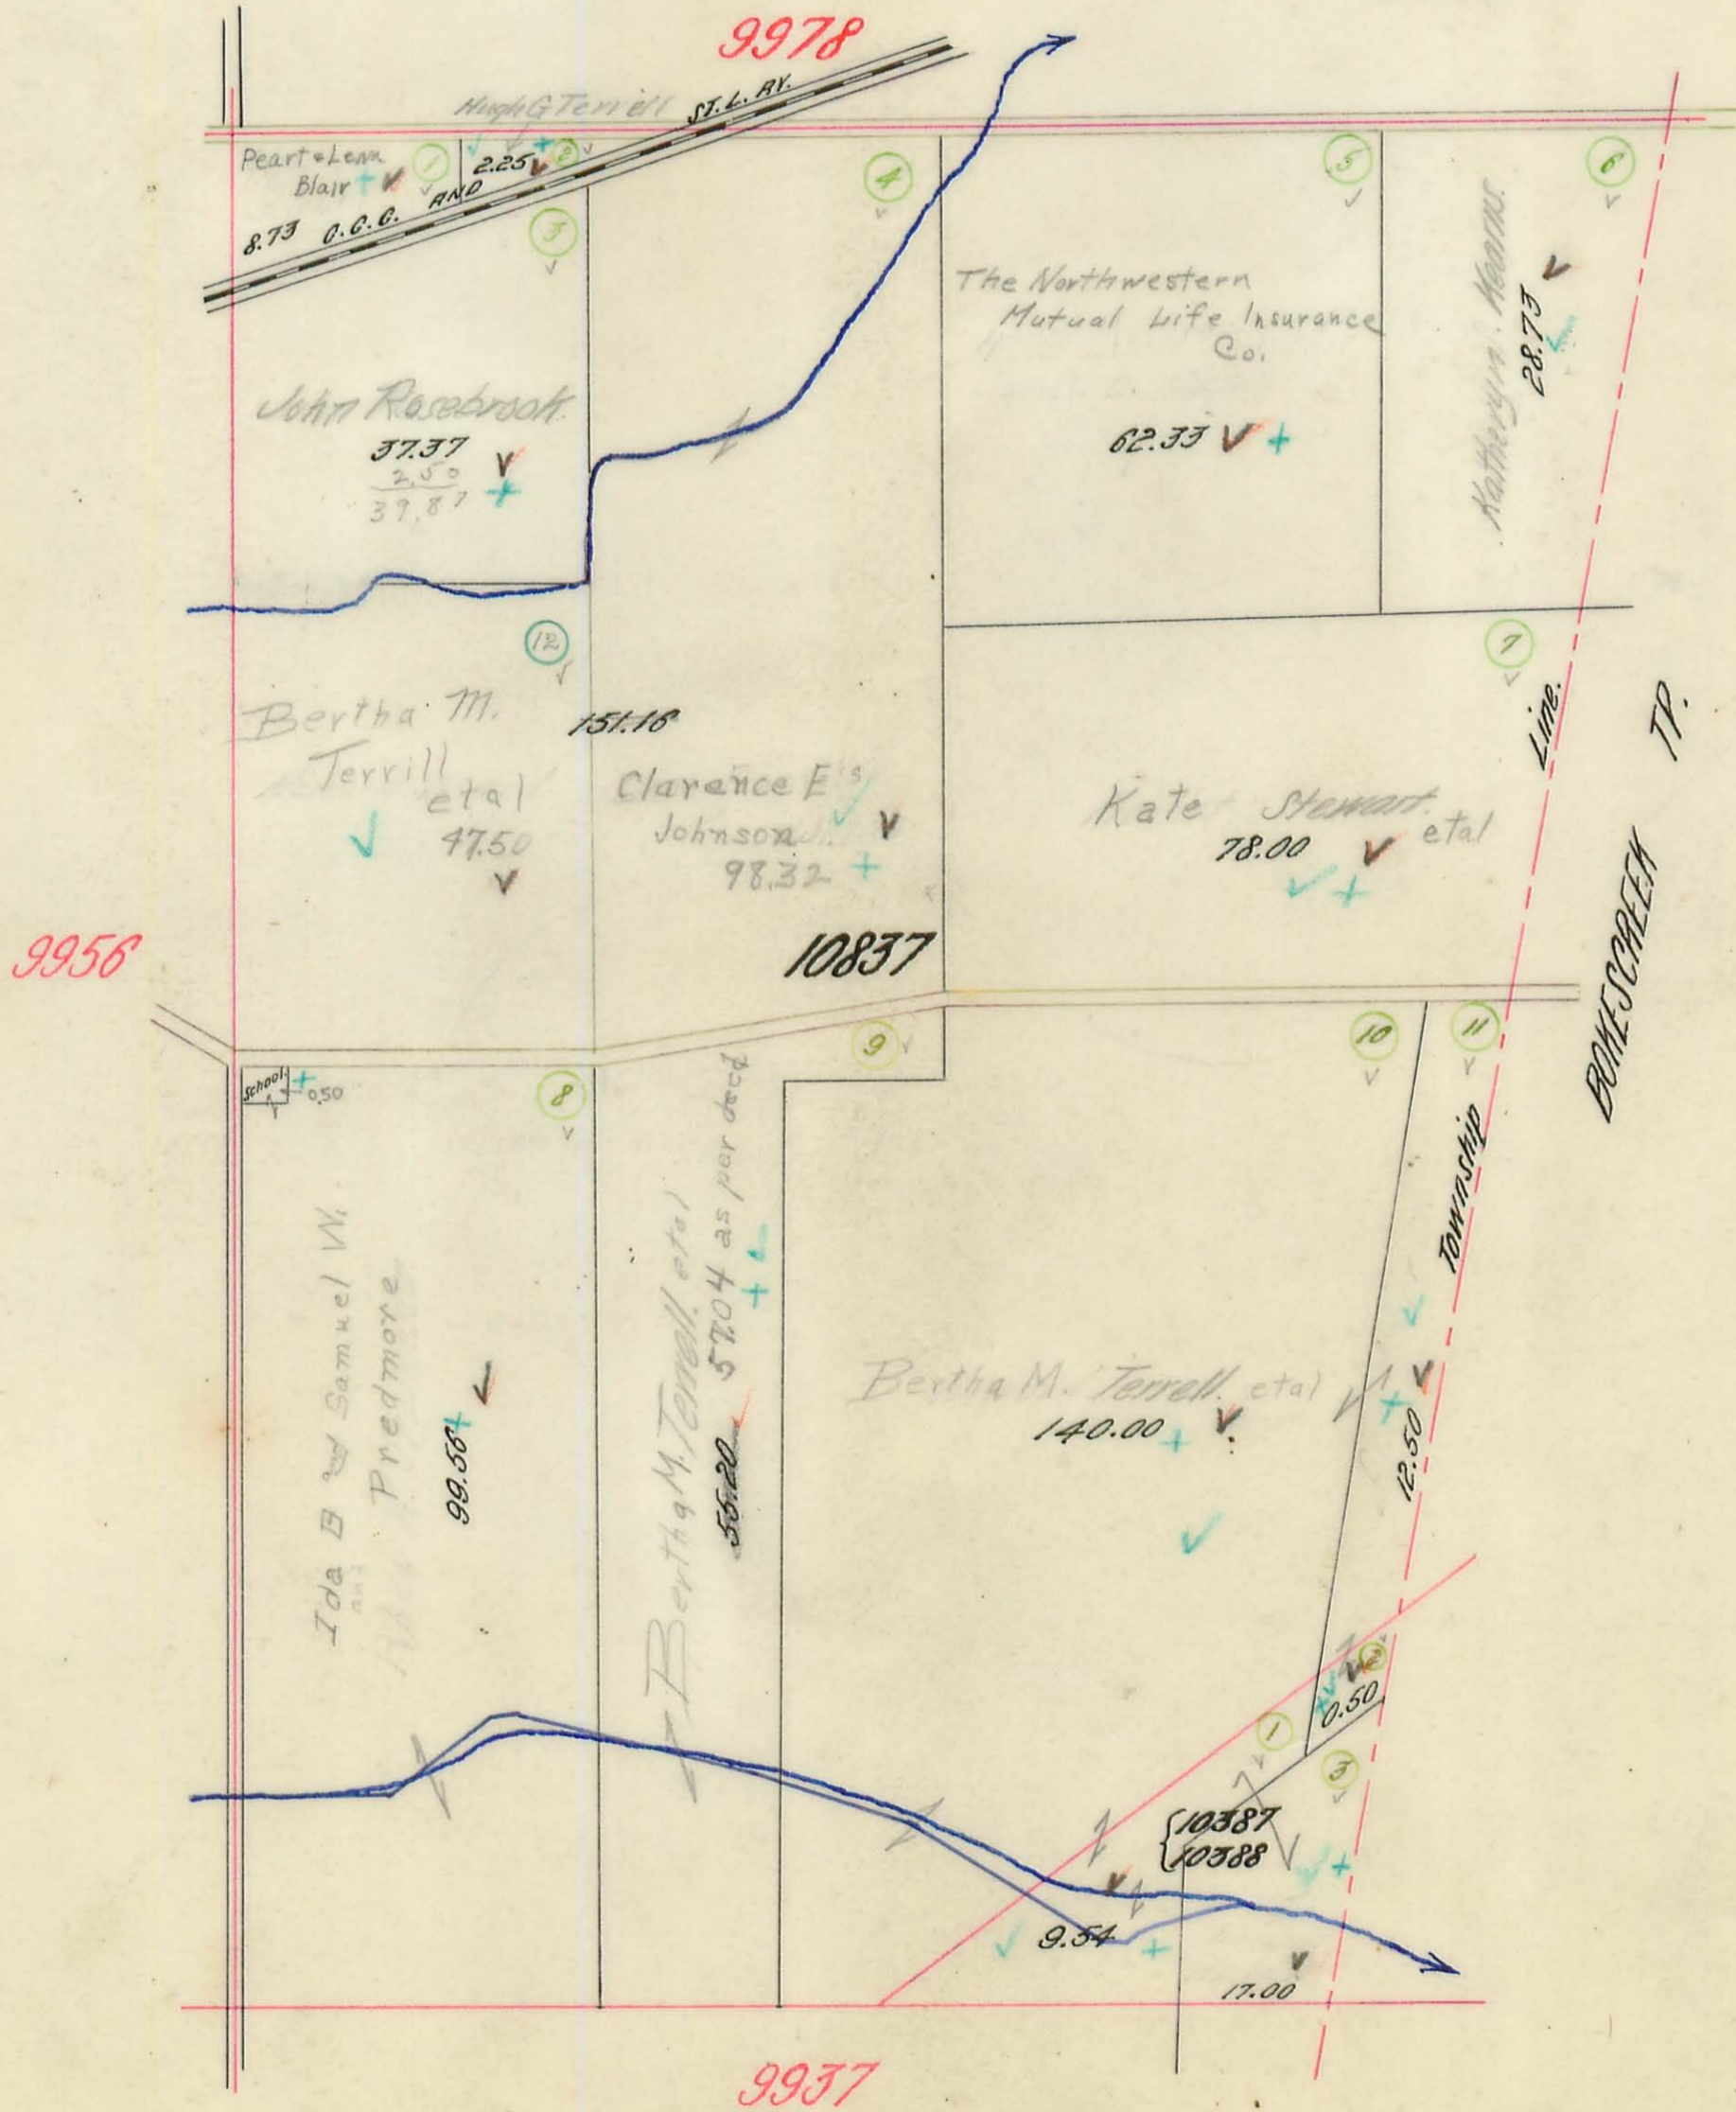 9978
Hugh G Terrell
ST. L. RY.
Peart & Lena
Blair
1
2.25
2
4
5
6
8.73 C.C.C. AND
3
The Northwestern
Mutual Life Insurance
Co.
62.33
Katheryn Kearns.
28.73
John Rosebrook.
37.37
2.50
39.87
12
7
Bertha M.
Terrill
etal
47.50
151.16
Clarence E
Johnson
98.32
Kate Stewart.
etal
78.00
Line.
TP.
BOKESCREEK
9956
10837
9
10
11
School.
0.50
8
Township
Ida B & Samuel W.
Predmore
99.56
Bertha M. Terrell. etal
57.04 as per deed
55.20
Bertha M. Terrell. etal
140.00
12.50
2
0.50
1
3
10387
10388
9.54
17.00
9937